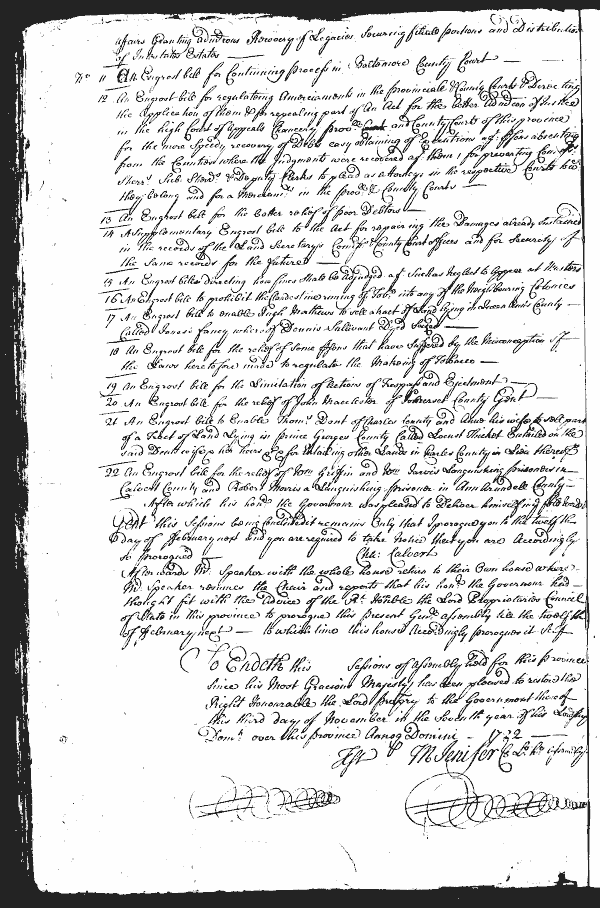 affairs Granting adm̃tions Recovery of Legacies Securing filial portions and Distribution
of Intestates Estates
No 11 An Engrost bill for Continuing Process in Baltemore County Court
12 An Engrost bill for regulateing Amerciaments in the provinciale & County Courts & Directing
the Application of them & for repealing part of An Act for the better Adm̃con of Justice
in the high Court of Appeals Chancery prov: and County Courts of this province
for the more Speedy recovery of Debts easy obtaining of Executions ag.t p̃sons absenting
from the Counties where the Judgments were recovered ag.t them, for preventing
Sher.s Sub. Sher.s & Deputy Clerks to plead as Attorneys in the respective Courts
they belong and for in the prov: & County Courts
13 An Engrost bill for the better relief of poor Debtors
14 A Supplementary Engrost bill to the Act for repairing the Damages already Sustained
in the records of the Land Secretarys County Court offices and for Security of
the Same records for the future
15 An Engrost bill directing how fines Shall be Adjudged ag.t Such as Neglect to Appear at Musters
16 An Engrost bill to prohibit the Clandestine running of Tob.o into any of the Neighbouring Colonies
17 An Engrost bill to enable Hugh Mathews to sell a tract of Land lying in Queen Anns County
Called fancy where of Dennis Sullivant Dyed Seized
18 An Engrost bill for the relief of Some p̃sons that have Suffered by the Misconception of
the Laws heretofore made to regulate the Makeing of Tobacco
19 An Engrost bill for the Limitation of Actions of Trespass and Ejectment
20 An Engrost bill for the relief of John Macclester of Somerset County Gent
21 An Engrost bill to Enable Thom.s Dent of Charles County and Anne his wife to sell part
of a Tract of Land Lying in Prince Georges County Called Locust Thicket Entailed on the
said Dents wife & her Heirs & for Entailing other Lands in Charles County in Lieu thereof
22 An Engrost bill for the relief of Wm Griffin and Wm Jarvis Languishing prisoners in
Calvert County and Robert Morris a Languishing prisoner in Ann Arundell County
After which his hon.r the Governour was pleased to Deliver himself in words
Gent this Sessions being Concluded it remains Only that I prorogue you to the twelfth
Day of ffebruary next and you are required to take Notice that you are Accordingly
so prorogued Cha: Calvert
Afterwards Mr Speaker with the whole house return to their Own house where
Mr Speaker resumes the Chair and reports that his hon.r the Governour had
thought fit with the Advice of the Rt Honble the Lord Proprietaries Councel
of State in this province to prorogue this present Gen.ll assembly till the twelfth
of ffebruary next to which time this house Accordingly prorogues it Self
So Endeth this Sessions of assembly held for this province
since his Most Gracious Majesty has been pleased to restore the
Right Honourable the Lord Prop̃ry to the Government thereof
this third day of November in the Seventh year of his Lordships
Dom.n over this province Annoq Domini 1722
Test p M Jenifer Cl. Lo. Ho.